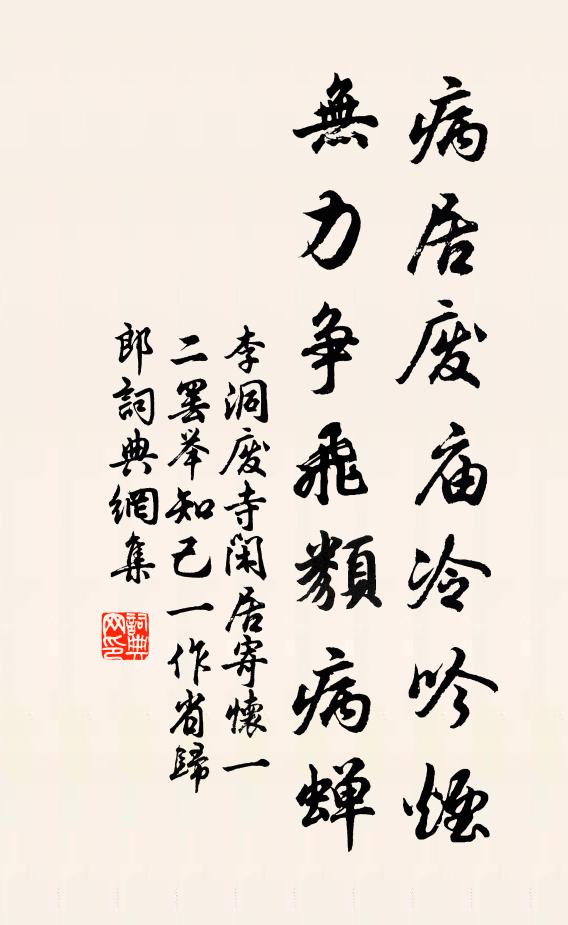 病居廢庙冷吟煙
無力争飛類病蝉
李洞廢寺閑居寄懷一
二罢举知己一作省歸
郎詞典網集
詞典网印